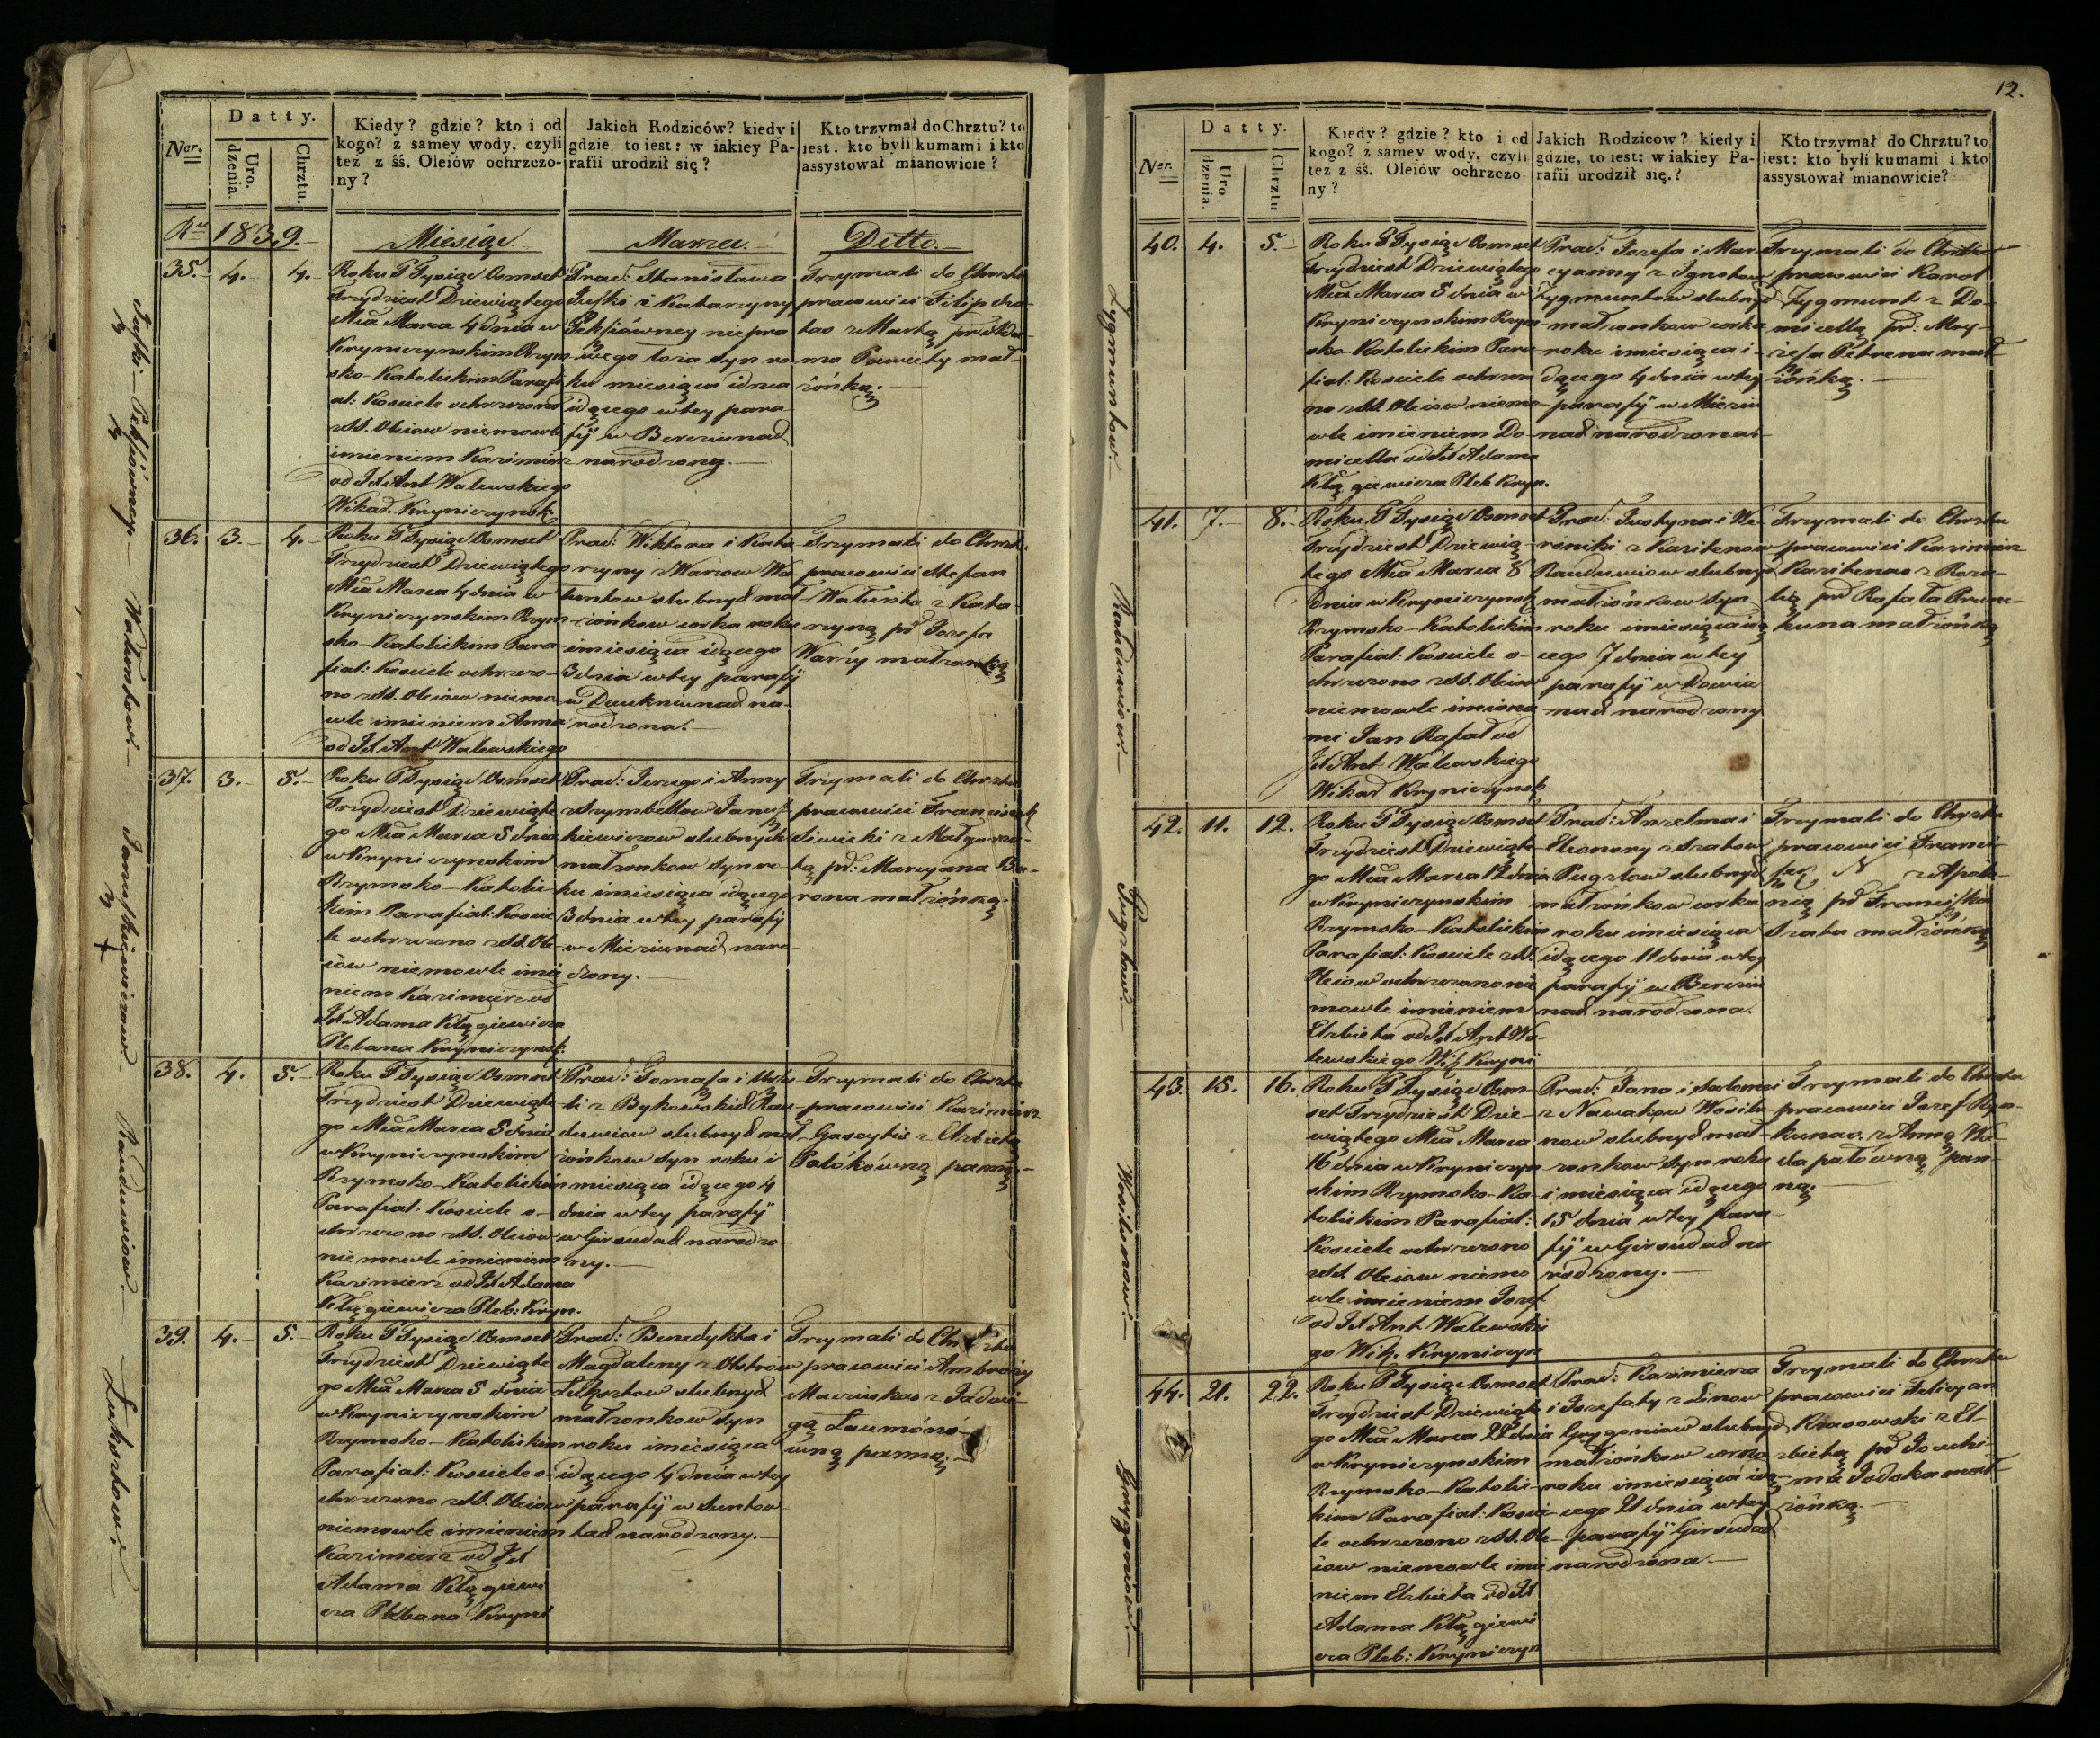 Datty.
Ner.
Uro-
dzenia.
Chrztu.
Kiedy? gdzie? kto i od
kogo? z samey wody, czyli
też z śś. Oleiów ochrzczo-
ny?
Jakich Rodziców? kiedy i
gdzie, to iest: w iakiey Pa-
rafii urodził się?
Kto trzymał do Chrztu? to
iest: kto byli kumami i kto
assystował mianowicie?
Ru 1839.
Miesiąc
Marca.
Ditto.
35. 4. 4.
Roku Tysiąc Osmset
Trzydziest Dziewiątego
Mca Marca 4 dnia w
Kryniczynskim Rzym-
sko-Katolickim Parafi
al: Kosciele ochrzczono
z SS. Oleiow niemowle
imieniem Kazimierz
od Jd Ant Walewskiego
Wikar. Kryniczynsk.
Prad: Stanisława
i Katarzyny
niepra
wego łoża syn ro
ku miesiąca i dnia
idącego w tey para
fij w Bercziunach
narodzony.
Trzymali do Chrztu
pracowici Filip
z Martą
mał
żonką.
36. 3. 4.
Roku Tysiąc Osmset
Trzydziest Dziewiątego
Mca Marca 4 dnia w
Kryniczynskim Rzym
sko-Katolickim Para
fial: Kosciele ochrzczo-
no z SS. Oleiow niemo
wle imieniem Anna
od Jd Ant Walewskiego
Prad: Wiktora i Kata
rzyny z Warzow Wa-
luntow slubnych mał
żonkow corka roku
i miesiąca idącego
3 dnia w tey parafij
w Daukniunach na-
rodzona.
Trzymali do Chrzt.
pracowici Stefan
z Kata
rzyną pr Jozefa
małżonką
37. 3. 5.
Roku Tysiąc Osmset
Trzydziest Dziewiąte
go Mca Marca 5 dnia
w Kryniczynskim
Rzymsko-Katolic
kim Parafial: Koscie
le ochrzczono z SS. Ole
iów niemowle imie
niem Kazimierz od
Jd Adama Kłągiewicza
Plebana Kryniczynsk.
Prad: Jerzego i Anny
z Szymbellow Janusz
kiewiczow slubnych
małżonkow syn ro
ku i miesiąca idącego
3 dnia w tey parafij
w Micziunach naro-
dzony.
Trzymali do Chrztu
pracowici Franciszek
Siwicki z Małgorza-
tą pr: Marcyana
małżonką.
38. 4. 5.
Roku Tysiąc Osmset
Trzydziest Dziewiąte-
go Mca Marca 5 dnia
w Krynczynskim
Rzymsko-Katolickim
Parafial: Kosciele o-
chrzczono z SS. Oleiow
niemowle imieniem
Kazimierz od Jd Adama
Kłągiewicza Pleb: Kryn.
Prad: Tomasza i
z Bykowskich Rau-
duwiow slubnych mał
żonkow syn roku i
miesiąca idącego 4
dnia w tey parafij
w Girsudach narodzo
ny.
Trzymali do Chrztu
pracowici Kazimierz
z Elzbietą
panną.
39. 4. 5.
Roku Tysiąc Osmset
Trzydziest Dziewiąte
go Mca Marca 5 dnia
w Krynczynskim
Rzymsko-Katolickim
Parafial: Kosciele o-
chrzczono z SS. Oleiow
niemowle imieniem
Kazimierz od Jd
Adama Kłągiewi
cza Plebana Kryni
Prad: Benedykta i
Magdaleny z
Luksztow slubnych
małżonkow syn
roku i miesiąca
idącego 4 dnia w tey
parafij w Suntow
tach narodzony.
Trzymali do Chrztu
pracowici Ambroży
z Jadwi
gą
wną panną.
Januszkiewiczow
Rauduwiow.
Luksztow.
12.
Datty.
Ner.
Uro
dzenia.
Chrztu
Kiedy? gdzie? kto i od
kogo? z samey wody, czyli
też z śś. Oleiów ochrzczo-
ny?
Jakich Rodzicow? kiedy i
gdzie, to iest: w iakiey Pa-
rafii urodził się.?
Kto trzymał do Chrztu? to
iest: kto byli kumami i kto
assystował mianowicie?
40. 4. 5.
Roku Tysiąc Osmset
Trzydziest Dziewiątego
Mca Marca 5 dnia w
Krynczynskim Rzym-
sko-Katolickim Para
fial: Kosciele ochrzczo
no z SS. Oleiow niemo-
wle imieniem Do-
micella od Jd Adama
Kłągiewicza Pleb Kryn.
Prad: Jozefa i Mar
cyanny z
Zygmuntow slubnych
małżonkow corka
roku i miesiąca i-
dącego 4 dnia w tey
parafij w Miczin
nach narodzona.
Trzymali do Chrztu
pracowici Karol
Zygmunt z Do-
micellą pr: Moy-
żesza Petrena mał
żonką.
41. 7. 8.
Roku Tysiąc Osmset
Trzydziest Dziewią-
tego Mca Marca 8
dnia w Krynczynsk
Rzymsko-Katolickim
Parafial: Kosciele o-
chrzczono z SS. Oleiow
niemowle imiona
mi Jan Rafał od
Jd Ant Walewskiego
Wikar Krynczynsk
Prad: Justyna i We-
roniki z Kazitenow
Rauduwiow slubnych
małżonkow syn
roku i miesiąca idą
cego 7 dnia w tey
parafij w Dowia
nach narodzony
Trzymali do Chrztu
pracowici Kazimierz
Kazitenas z Roza-
lią pr Rafała
małżonką
42. 11. 12.
Roku Tysiąc Osmset
Trzydziest Dziewiąte-
go Mca Marca 12 dnia
w Krynczynskim
Rzymsko-Katolickim
Parafial: Kosciele z SS.
Oleiow ochrzczono nie
mowle imieniem
Elzbieta od Jd Ant Wa-
lewskiego Wik Kryni
Prad: Anzelma i
Eleonory z Szatow
Pugzlow slubnych
małżonkow corka
roku i miesiąca
idącego 11 dnia w tey
parafij w Berczin
nach narodzona.
Trzymali do Chrztu
pracowici Franci-
szek N z Apolo-
nią pr Franciszka
Szata małżonką
43. 15. 16.
Roku Tysiąc Osm-
set Trzydziest Dzie-
wiątego Mca Marca
16 dnia w Krynczyn
skim Rzymsko-Ka-
tolickim Parafial:
Kosciele ochrzczono
z SS. Oleiow niemo
wle imieniem Jozef
od Jd Ant. Walewskie
go Wik. Krynczyn
Prad: Jana i Salomei
z Nawakow Wosilu-
now slubnych mał-
żonkow syn roku
i miesiąca idącego
15 dnia w tey para-
fij w Girsudach na
rodzony.
Trzymali do Chrztu
pracowici Jozef
z Anną
pan-
ną.
44. 21. 22.
Roku Tysiąc Osmset
Trzydziest Dziewiąte
go Mca Marca 22 dnia
w Krynczynskim
Rzymsko-Katolic-
kim Parafial: Koscie-
le ochrzczono z SS. Ole-
iow niemowle imie
niem Elzbieta od Jd
Adama Kłągiewi
cza Pleb: Krynczyn
Prad: Kazimierza
i Jozefaty z Linow
Grygoniow slubnych
małżonkow corka
roku i miesiąca idą-
cego 21 dnia w tey
parafij Girsudach
narodzona.
Trzymali do Chrztu
pracowici Felicyan
Kasowski z El-
zbietą pr Joachi-
ma Jodoka mał-
żonką.
Zygmuntow
Rauduwiow.
Pugzlow.
Wosilunow.
Grygoniow.